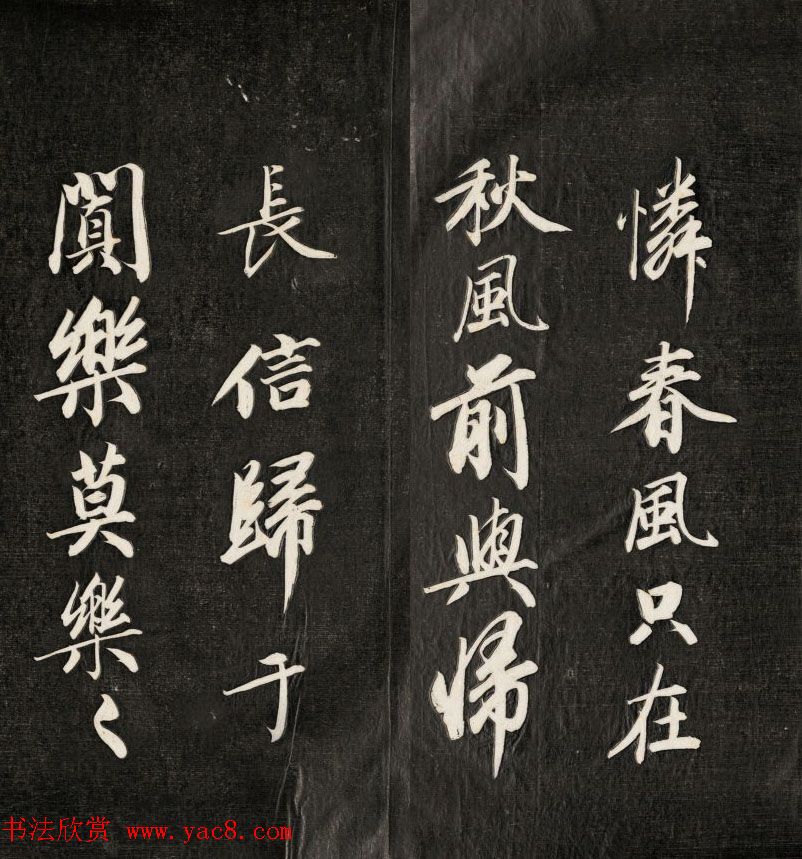 憐春風只在
秋風前與帰
長信歸于
闐樂莫樂〻
书法欣赏 www.yac8.com